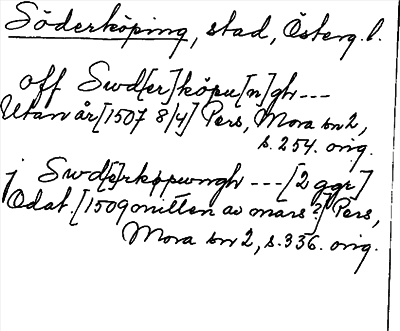 Söderköping, stad, Österg.l.
off Swd[er]köpu[n]gh ---
Utan år [1507 8/4] Pers, Mora bn 2,
s. 254. orig.
j Swd[e]rkøpwngh --- [2 ggr]
Odat. [1509 mitten av mars?] Pers,
Mora bn 2, s. 336. orig.